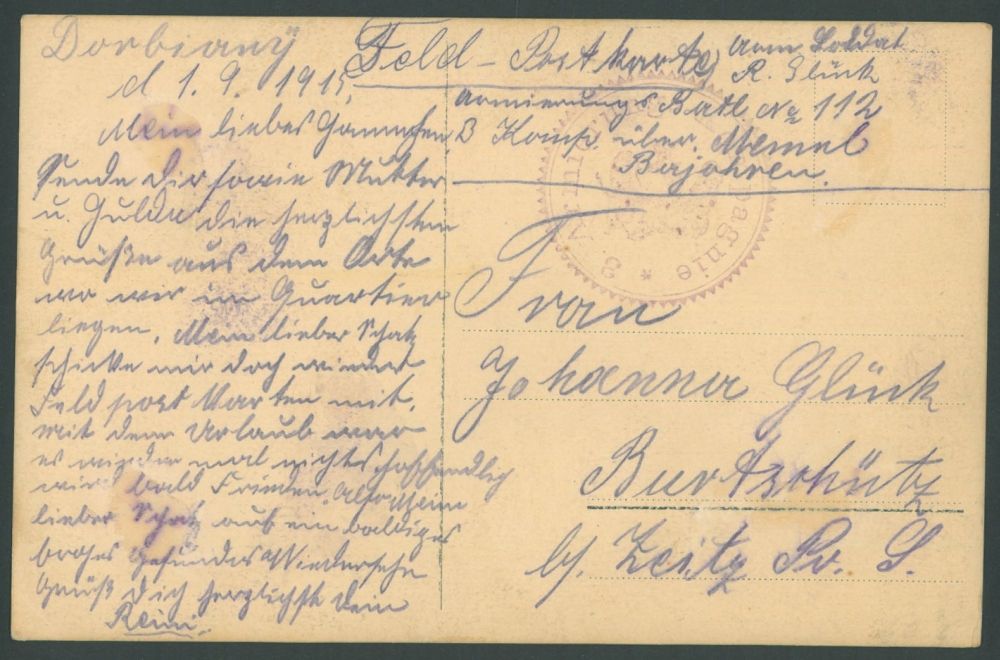 Dorbianÿ
d 1. 9. 1915
Mein liebes
Sende dir sowie Mutter
u. Hulda die herzlichsten
Grüße aus dem Orte
wo wir im Quartier
liegen. Mein lieber Schatz
schicke mir doch wieder
Feldpost Karten mit.
Mit dem Urlaub war
es wieder mal nichts hoffendlig
wird bald Frieden. Also Meine
lieber Schatz auf ein baldiges
gesundes Wiedersehn
Grüß dich herzlichst dein
Reini
Feld-Postkarte
Arm. Soldat
R. Glück
Armierungs Batl № 112
3 Komp. über Memel
Bajohren.
* 3. Armierungs Kompagnie
Frau
Johanna Glück
Burtschütz
b/. Zeitz Pr. S.